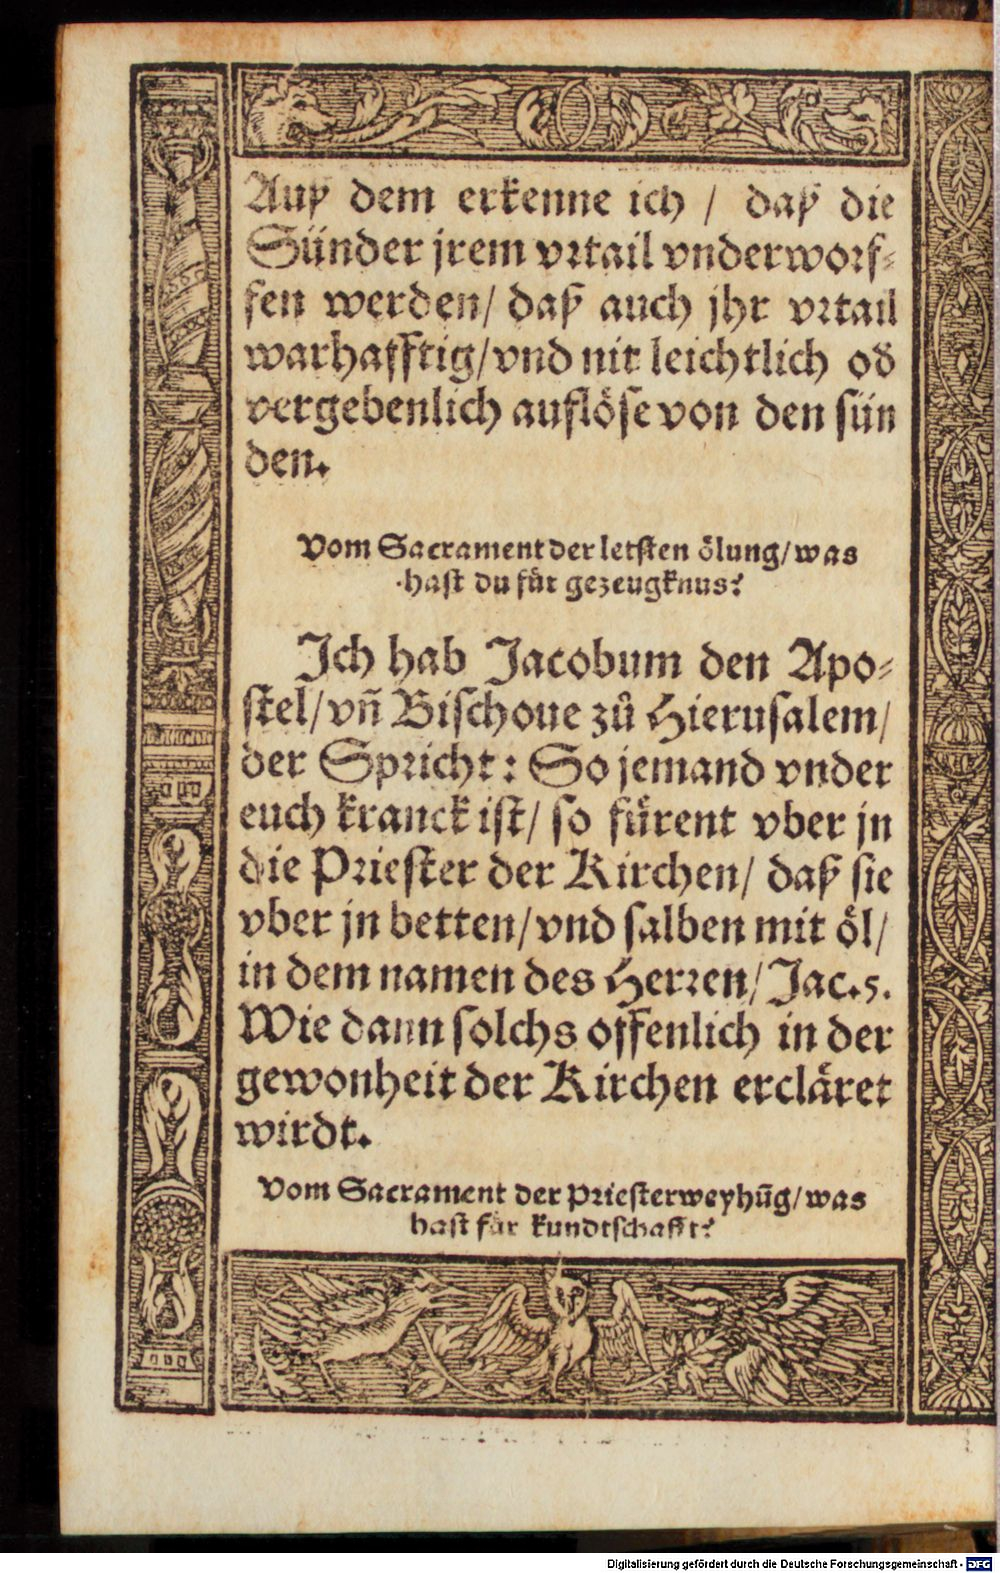 Auß dem erkenne ich / daß die
Sünder jrem vrtail vnderworf⸗
fen werden/ daß auch jhr vrtail
warhafftig/vnd nit leichtlich oď
vergebenlich auflöse von den sün
den.
Vom Sacrament der letsten ölung/was
hast du für gezeugknus?
Ich hab Jacobum den Apo⸗
stel/vñ Bischoue zů Hierusalem/
der Spricht: So jemand vnder
euch kranck ist/ so fürent vber jn
die Priester der Kirchen/ daß sie
vber jn betten/vnd salben mit öl/
in dem namen des Herren/Jac.5.
Wie dann solchs offenlich in der
gewonheit der Kirchen ercläret
wirdt.
Vom Sacrament der Priesterweyhũg/was
hast für kundtschafft?
Digitalisierung gefördert durch die Deutsche Forschungsgemeinschaft - DFG